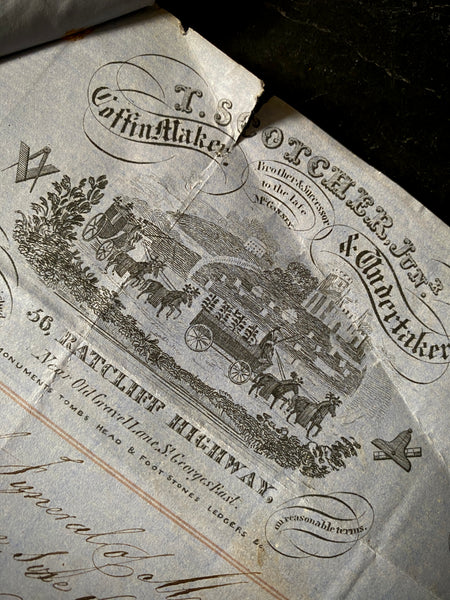 T. SCOTCHER, Junr.
Coffin Maker,
Brother & Successor
to the late
& Undertaker
56, RATCLIFF HIGHWAY,
Near Old Gravel Lane, St. Georges East.
MONUMENTS TOMBS HEAD & FOOT-STONES LEDGERS &c.
on reasonable terms.
Funeral of M